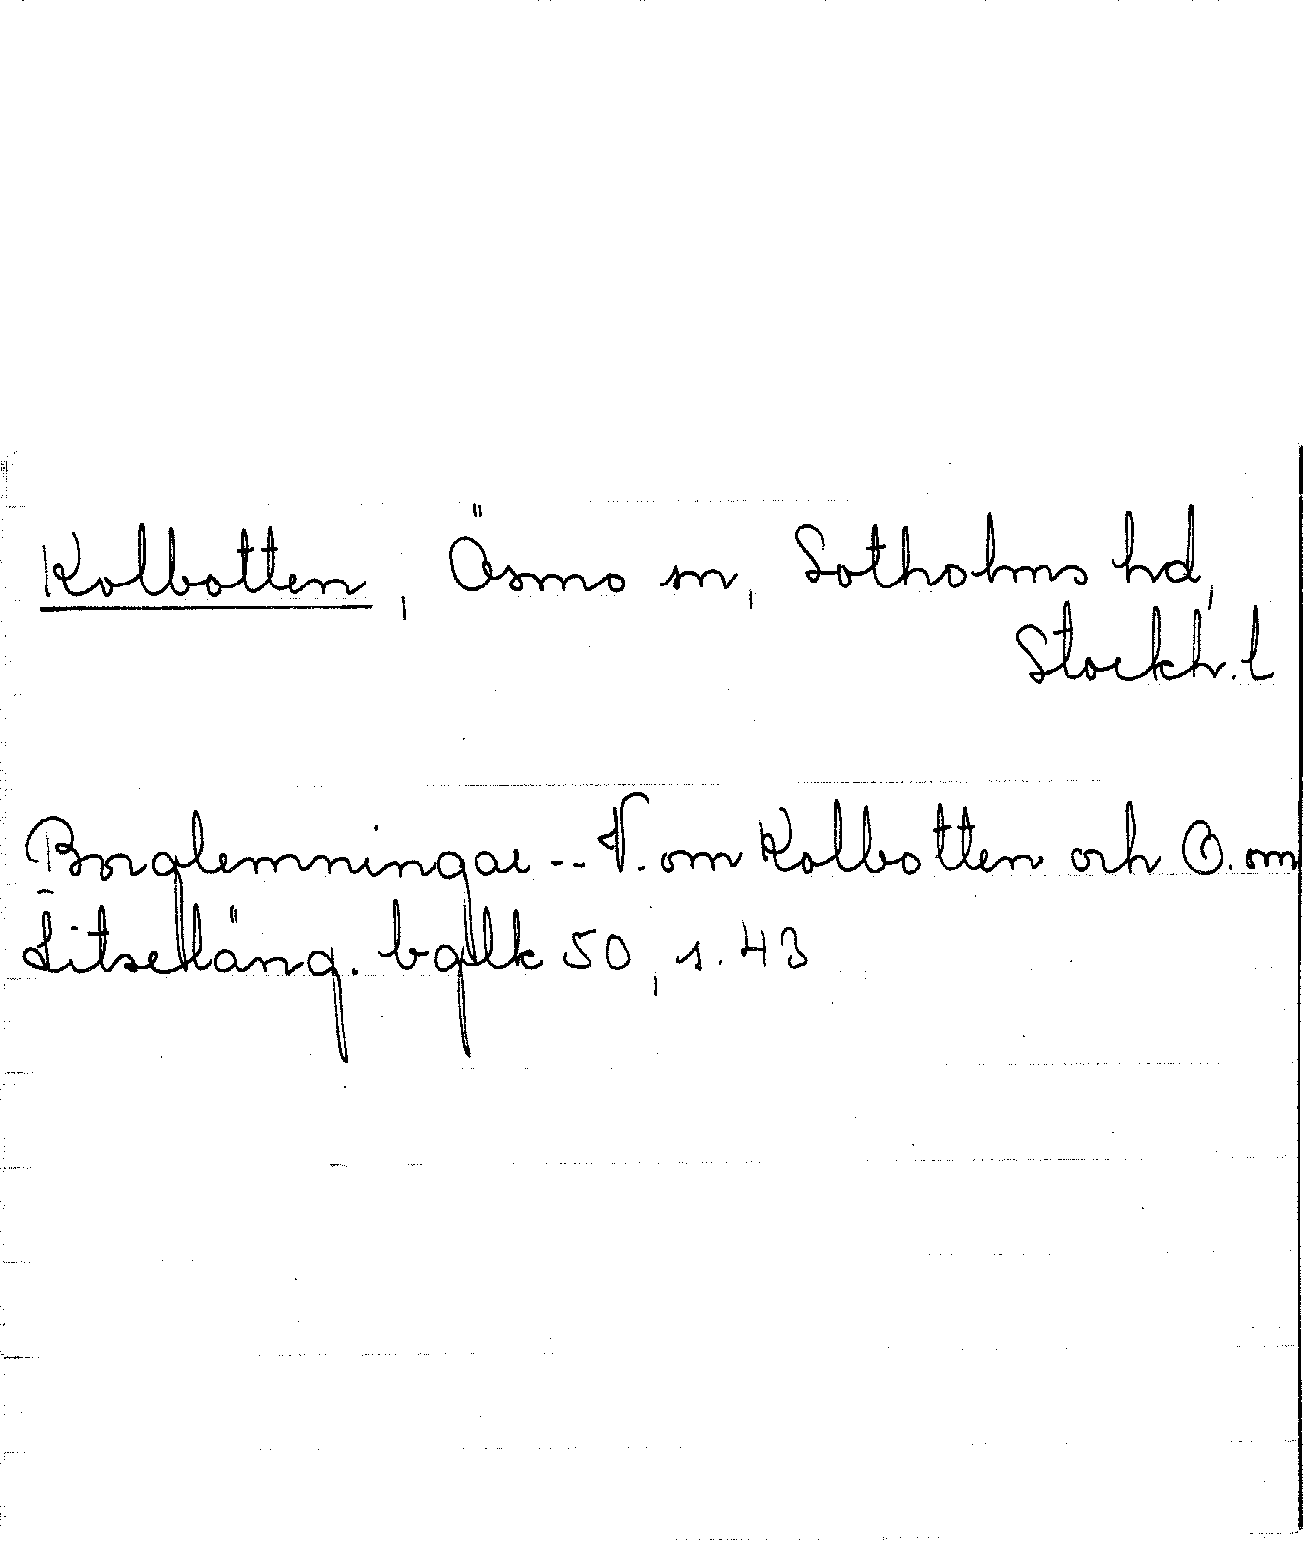 Kolbotten, Ösmo sn, Sotholms hd,
Stockh. l
Borglemningar -- V. om Kolbotten och O. om
Litselläng. bglk 50, s. 43